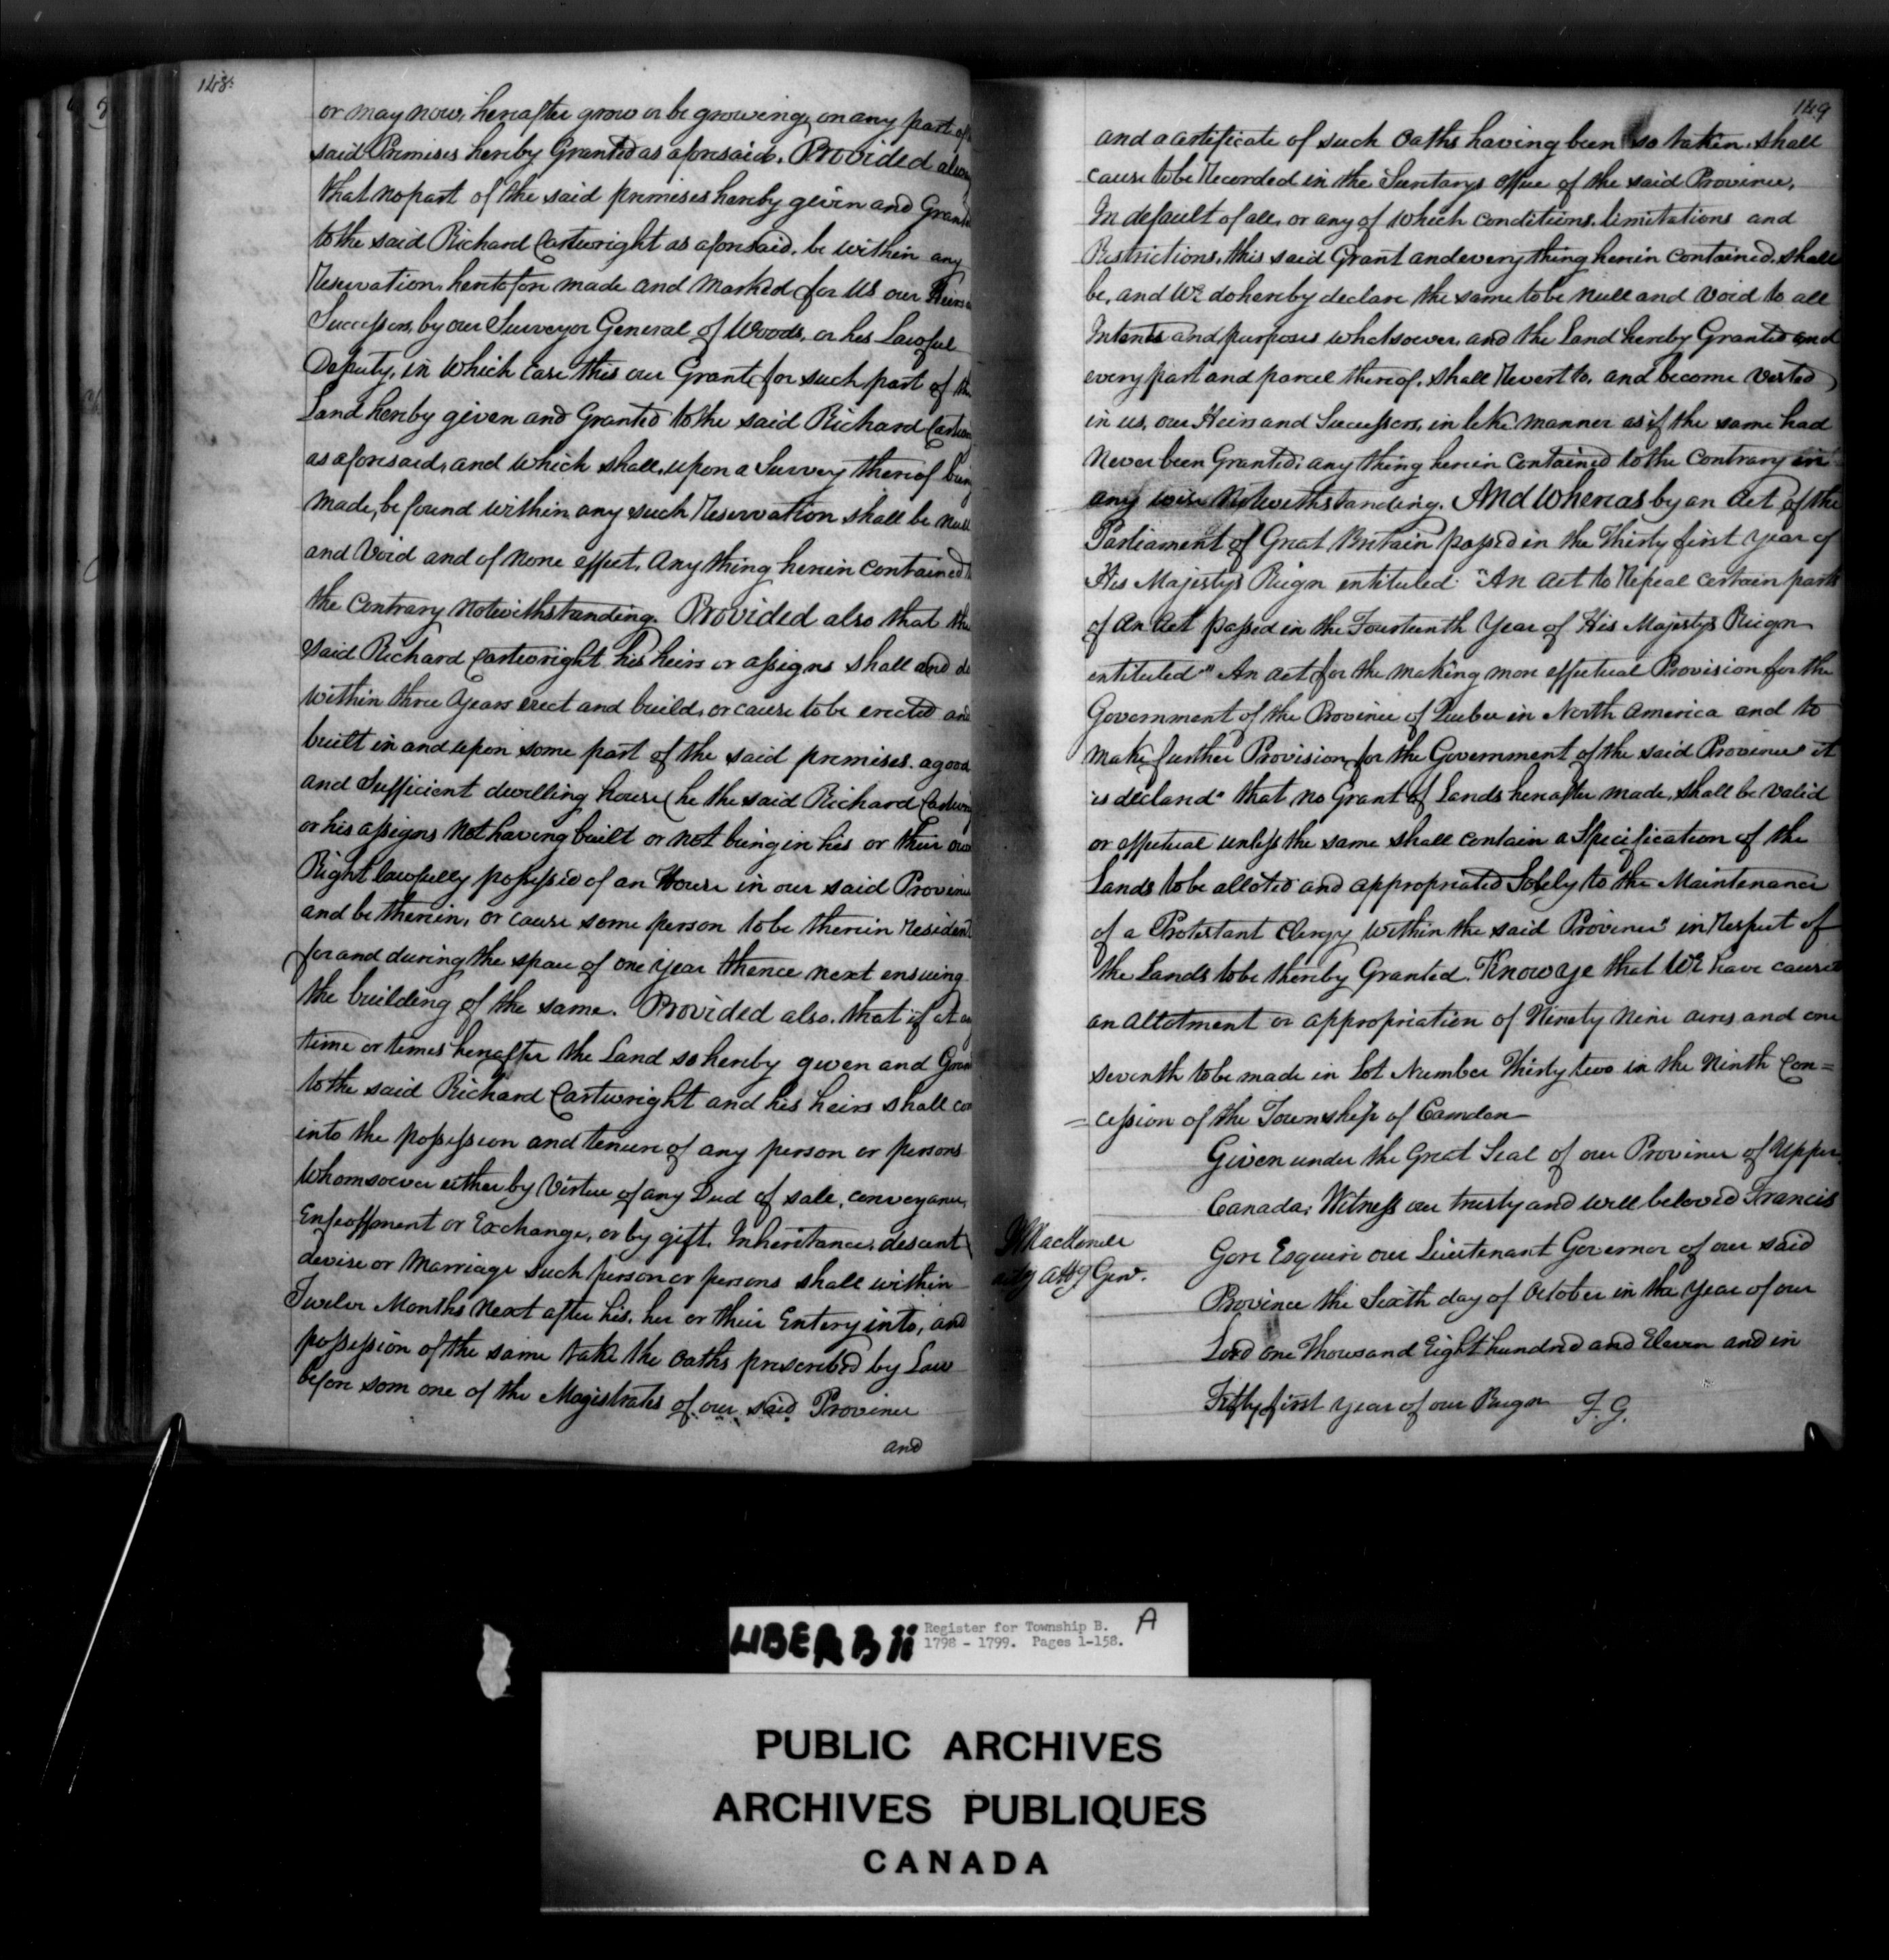 148.
or may now, hereafter grow or be growing, on any part of
said Premises hereby Granted as aforesaid. Provided alway
that no part of the said premises hereby given and Grante
to the said Richard Cartwright as aforesaid, be within any
Reservation, heretofore made and Marked for us our Heirs
Successors, by our Surveyor General of Woods, or his Lawful
Deputy, in which Case this our Grant for such part of the
Land hereby given and Granted to the said Richard Cartwr
as aforesaid, and which shall, upon a Survey thereof being
made, be found within any such Reservation shall be Null
and Void and of None effect, any thing herein Contained
the Contrary Notwithstanding. Provided also that the
said Richard Cartwright his heirs or assigns shall and do
within three Years erect and build, or cause to be erected and
built in and upon some part of the said premises. a good
and Sufficient dwelling house (he the said Richard Cartwri
or his assigns Not having built or not being in his or their own
Right lawfully possessed of an House in our said Province
and be therein, or cause some person to be therein Resident
for and during the space of one year thence next ensuing
the building of the same. Provided also. that if at any
time or times hereafter the Land so hereby given and Gran
to the said Richard Cartwright and his heirs shall co
into the possession and tenure of any person or persons
Whomsoever either by Virtue of any Deed of sale, conveyance,
Enfeoffment or Exchange, or by gift, Inheritance, descent
devise or Marriage such person or persons shall within
Twelve Months Next after his, her or their Entery into, and
possession of the same take the Oaths prescribed by Law
before som one of the Magistrates of our said Province
and
149
and a certificate of such Oaths having been so taken, shall
cause to be Recorded in the Secretarys Office of the said Province,
In default of all, or any of which conditions, limitations and
Restrictions, this said Grant and every thing herein Contained, shall
be, and We do hereby declare the same to be Null and Void to all
Intents and purposes whatsoever, and the Land hereby Granted and
every part and parcel thereof, shall Revert to, and become Vested
in us, our Heirs and Successors, in like manner as if the same had
Never been Granted; any thing herein Contained to the Contrary in
any wise Notwithstanding. And Whereas by an Act of the
Parliament of Great Britain passed in the Thirty first Year of
His Majestys Reign entituled "An Act to Repeal Certain parts
of An Act passed in the Fourteenth Year of His Majestys Reign
entituled" An Act for the making more effectual Provision for the
Government of the Province of Quebec in North America and to
make further Provision for the Government of the said Province" it
is declared" that no Grant of Lands hereafter made, shall be valid
or effectual unless the same shall contain a Specification of the
Lands to be alloted and appropriated Solely to the Maintenance
of a Protestant Clergy within the said Province" in Respect of
the Lands to be thereby Granted. Know ye that We have caused
an allotment or appropriation of Ninety Nine acres and one
seventh to be made in Lot Number Thirty two in the Ninth Con=
=cession of the Township of Camden
Given under the Great Seal of our Province of Upper
Canada: Witness our trusty and well beloved Francis
Gore Esquire our Lieutenant Governor of our said
Province the Sixth day of October in the Year of our
Lord One Thousand Eight hundred and Eleven and in
Fifty first Year of our Reign F. G.
Atty Genl.
LIBER B ii
Register for Township B.
1798 - 1799. Pages 1-158.
A
PUBLIC ARCHIVES
ARCHIVES PUBLIQUES
CANADA